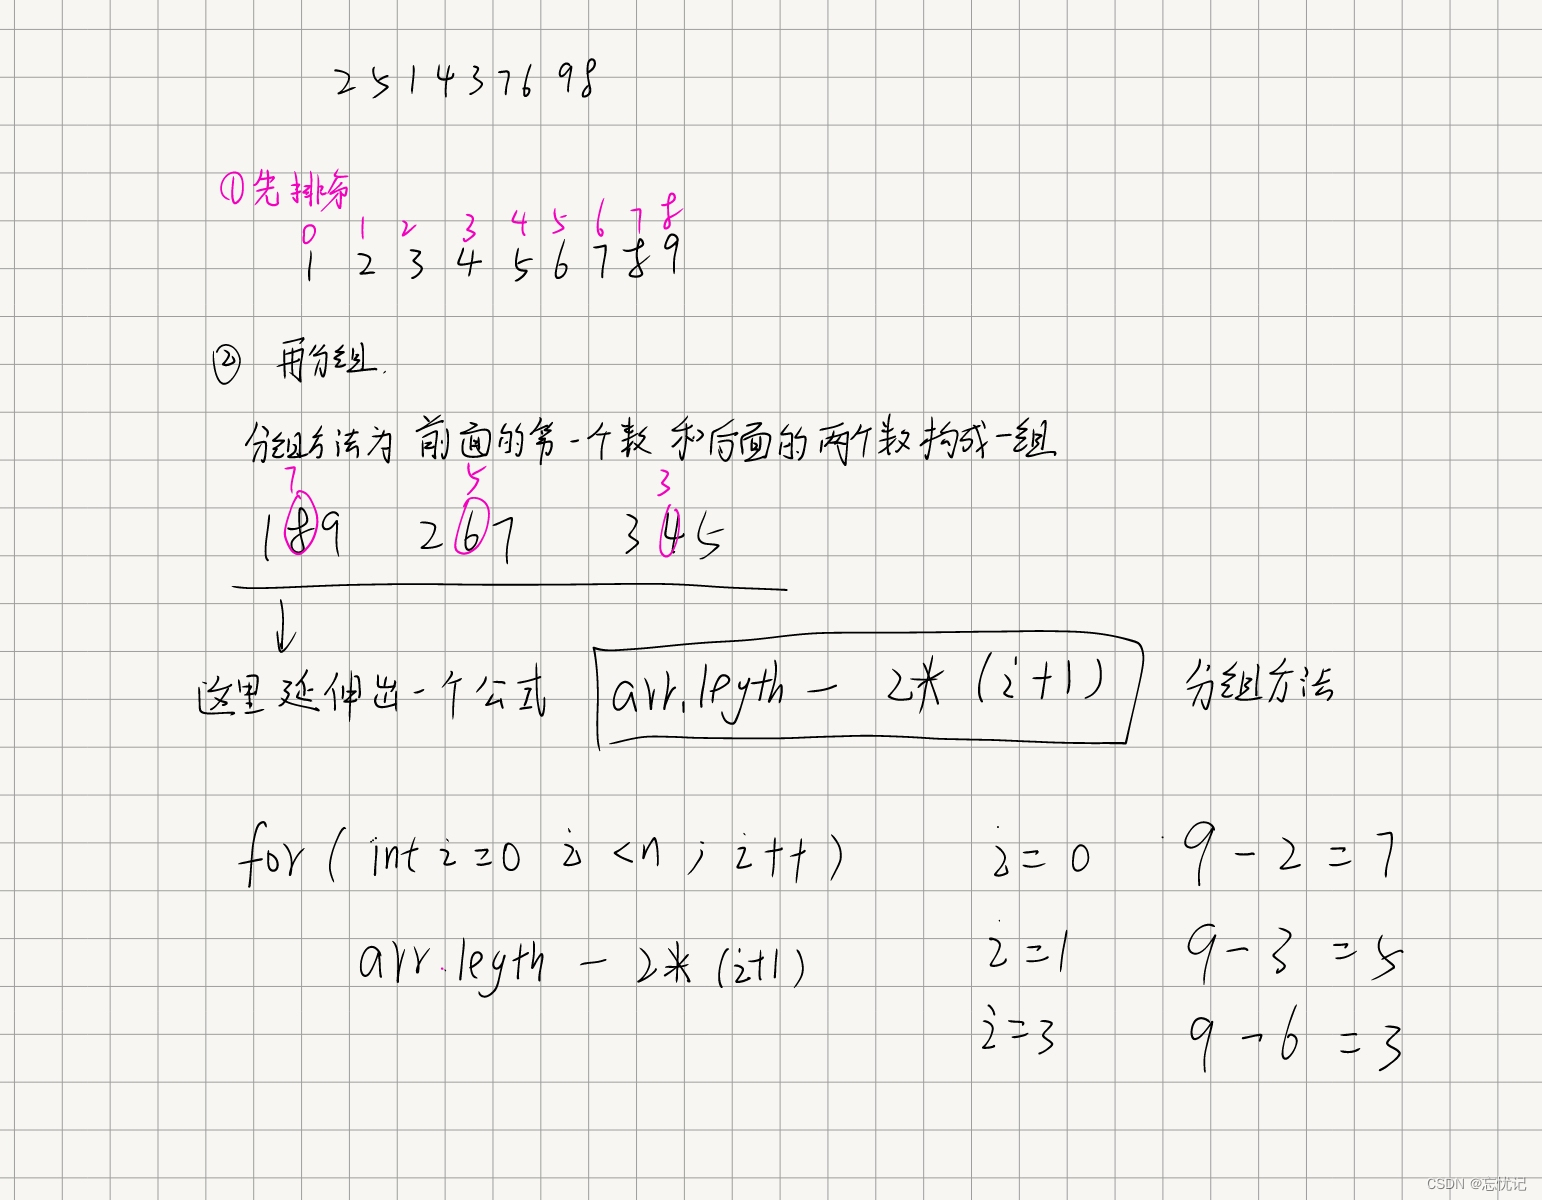 2 5 1 4 3 7 6 9 8
①先排序
0 1 2 3 4 5 6 7 8
1 2 3 4 5 6 7 8 9
② 再分组.
分组方法为 前面的第一个数 和后面的两个数构成一组
7 5 3
1 8 9 2 6 7 3 4 5
↓
这里延伸出一个公式 arr.length - 2* (i+1) 分组方法
for ( int i=0 i <n ; i++ ) i = 0 9 - 2 = 7
arr.length - 2* (i+1) i = 1 9 - 3 = 5
i = 3 9 - 6 = 3
CSDN @忘忧记